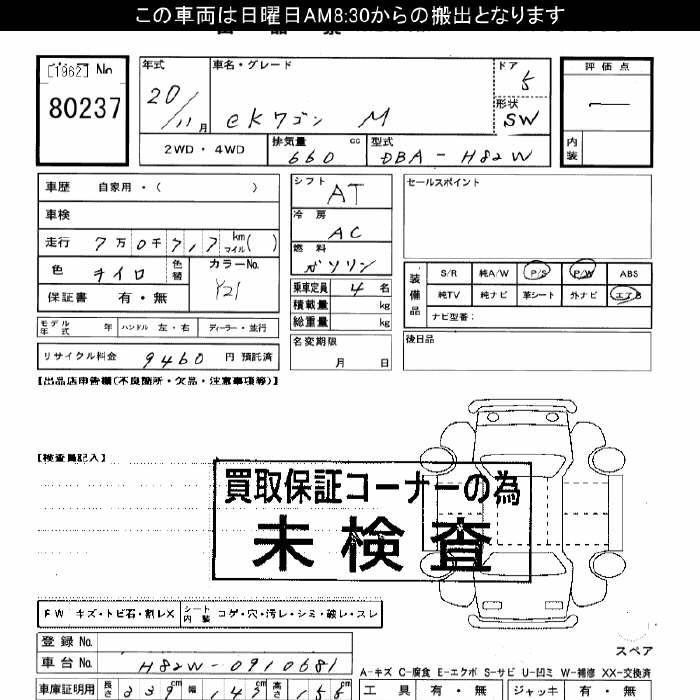 この車両は日曜日AM8:30からの搬出となります
[1962] No
80237
年式 20/11月
車名・グレード eKワゴン M
ドア 5
形状 SW
評価点 ―
内装
2WD・4WD
排気量 660 cc
型式 DBA-H82W
車歴 自家用・( )
車検
走行 7万0千717 km マイル( )
色 キイロ 色替 カラーNo. Y21
保証書 有・無
シフト AT
冷房 AC
燃料 ガソリン
乗車定員 4名
積載量 kg
総重量 kg
セールスポイント
装備品 S/R 純A/W P/S P/W ABS
純TV 純ナビ 革シート 外ナビ エアB
ナビ型番:
モデル年式 年 ハンドル 左・右 ディーラー・並行
リサイクル料金 9460 円 預託済
名変期限 月 日
後日品
【出品店申告欄(不良箇所・欠品・注意事項等)】
【検査員記入】
買取保証コーナーの為
未検査
FW キズ・トビ石・割レX シート内装 コゲ・穴・汚レ・シミ・破レ・スレ
登録No.
車台No. H82W-0910681
スペア
A-キズ C-腐食 E-エクボ S-サビ U-凹ミ W-補修 XX-交換済
車庫証明用 長さ 339cm 幅 147cm 高さ 155cm
工具 有・無 ジャッキ 有・無